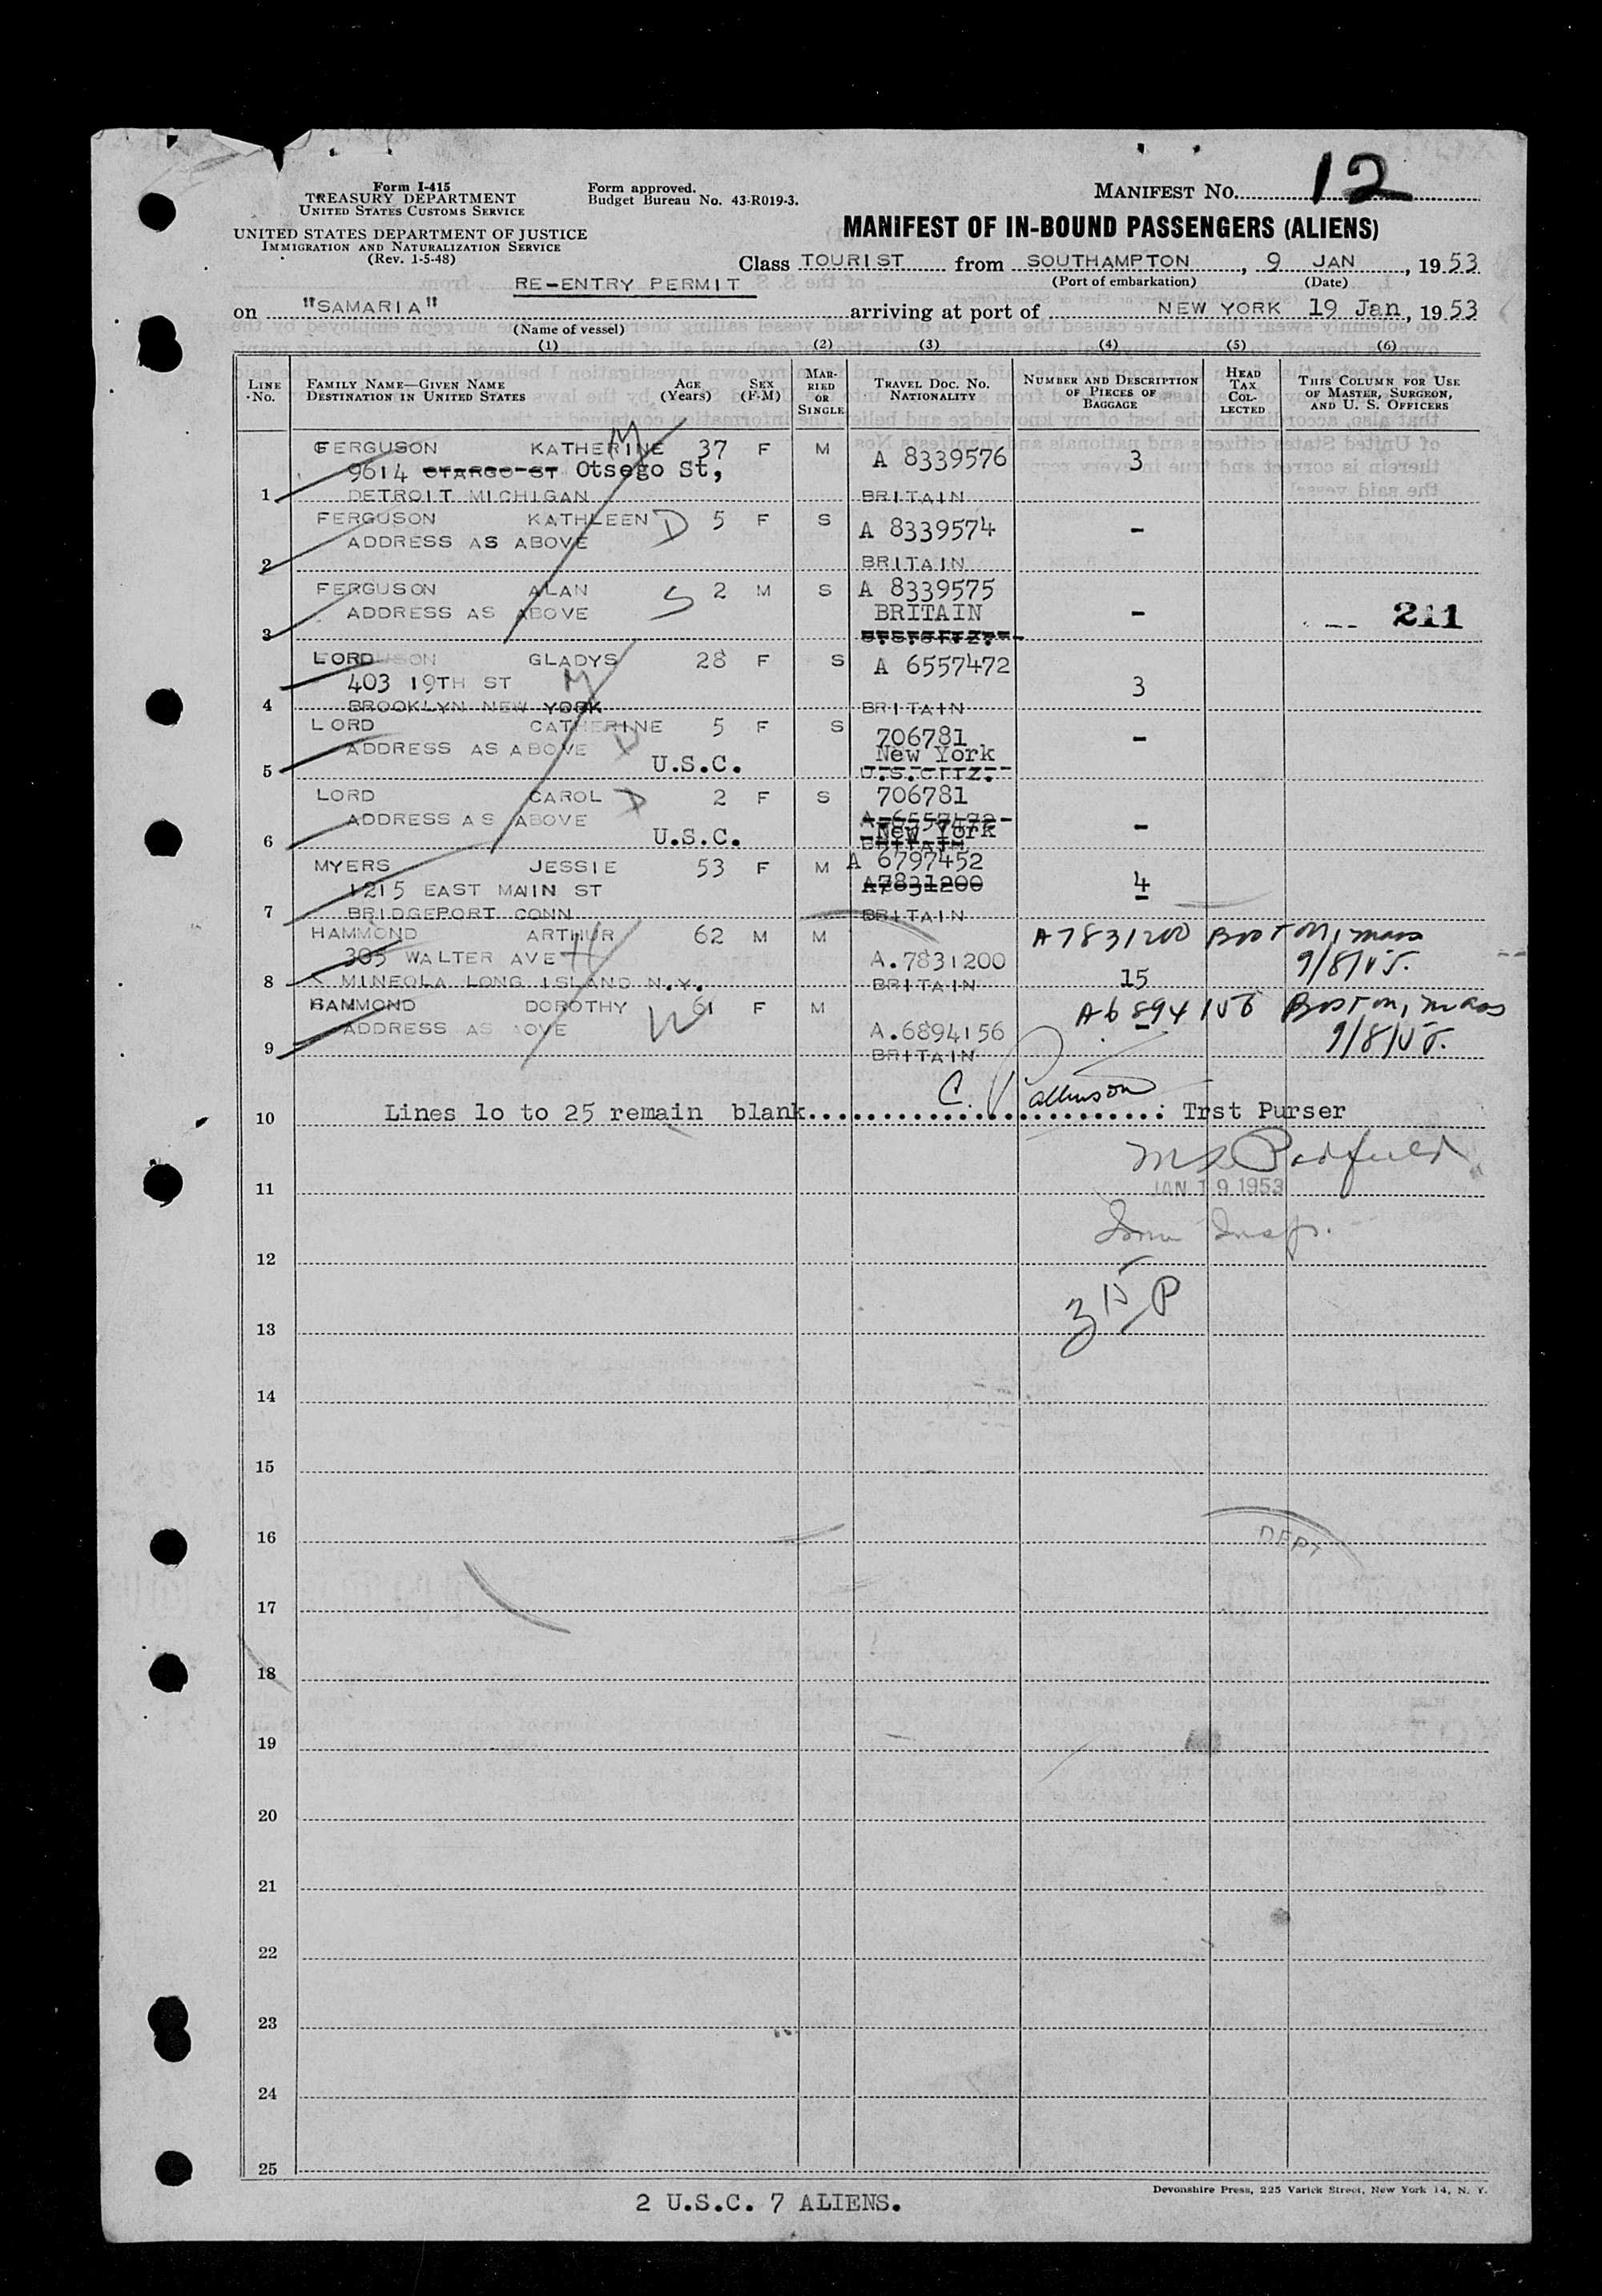 Form I-415
TREASURY DEPARTMENT
UNITED STATES CUSTOMS SERVICE
UNITED STATES DEPARTMENT OF JUSTICE
IMMIGRATION AND NATURALIZATION SERVICE
(Rev. 1-5-48)
Form approved.
Budget Bureau No. 43-R019-3.
MANIFEST NO. 12
MANIFEST OF IN-BOUND PASSENGERS (ALIENS)
Class TOURIST from SOUTHAMPTON, 9 JAN, 1953
(Port of embarkation) (Date)
RE-ENTRY PERMIT
on "SAMARIA" arriving at port of NEW YORK 19 Jan, 1953
(Name of vessel)
(1) (2) (3) (4) (5) (6)
LINE NO. FAMILY NAME—GIVEN NAME DESTINATION IN UNITED STATES AGE (Years) SEX (F-M) MARRIED OR SINGLE TRAVEL DOC. NO. NATIONALITY NUMBER AND DESCRIPTION OF PIECES OF BAGGAGE HEAD TAX COLLECTED THIS COLUMN FOR USE OF MASTER, SURGEON, AND U. S. OFFICERS
FERGUSON KATHERINE M 37 F M A 8339576 3
9614 OTARGO ST Otsego St,
1 DETROIT MICHIGAN BRITAIN
FERGUSON KATHLEEN D 5 F S A 8339574 -
ADDRESS AS ABOVE
2 BRITAIN
FERGUSON ALAN S 2 M S A 8339575
ADDRESS AS ABOVE BRITAIN - 211
3
LORD GLADYS 28 F S A 6557472
403 19TH ST M 3
4 BROOKLYN NEW YORK BRITAIN
LORD CATHERINE 5 F S 706781 -
ADDRESS AS ABOVE D New York
5 U.S.C. U.S.CITZ.
LORD CAROL D 2 F S 706781
ADDRESS AS ABOVE A 6557472 -
6 U.S.C. New York
BRITAIN
MYERS JESSIE 53 F M A 6797452
1215 EAST MAIN ST A7831200 4
7 BRIDGEPORT CONN BRITAIN
HAMMOND ARTHUR 62 M M A7831200 Boston, mass
305 WALTER AVE H A.7831200 9/8/55.
8 MINEOLA LONG ISLAND N.Y. BRITAIN 15
HAMMOND DOROTHY W 61 F M A6894156 Boston, mass
ADDRESS AS OVE A.6894156 - 9/8/55.
9 BRITAIN
10 Lines 1o to 25 remain blank.......................: Trst Purser
11 JAN 19 1953
12
13
14
15
16 DEPT
17
18
19
20
21
22
23
24
25
2 U.S.C. 7 ALIENS.
Devonshire Press, 225 Varick Street, New York 14, N. Y.